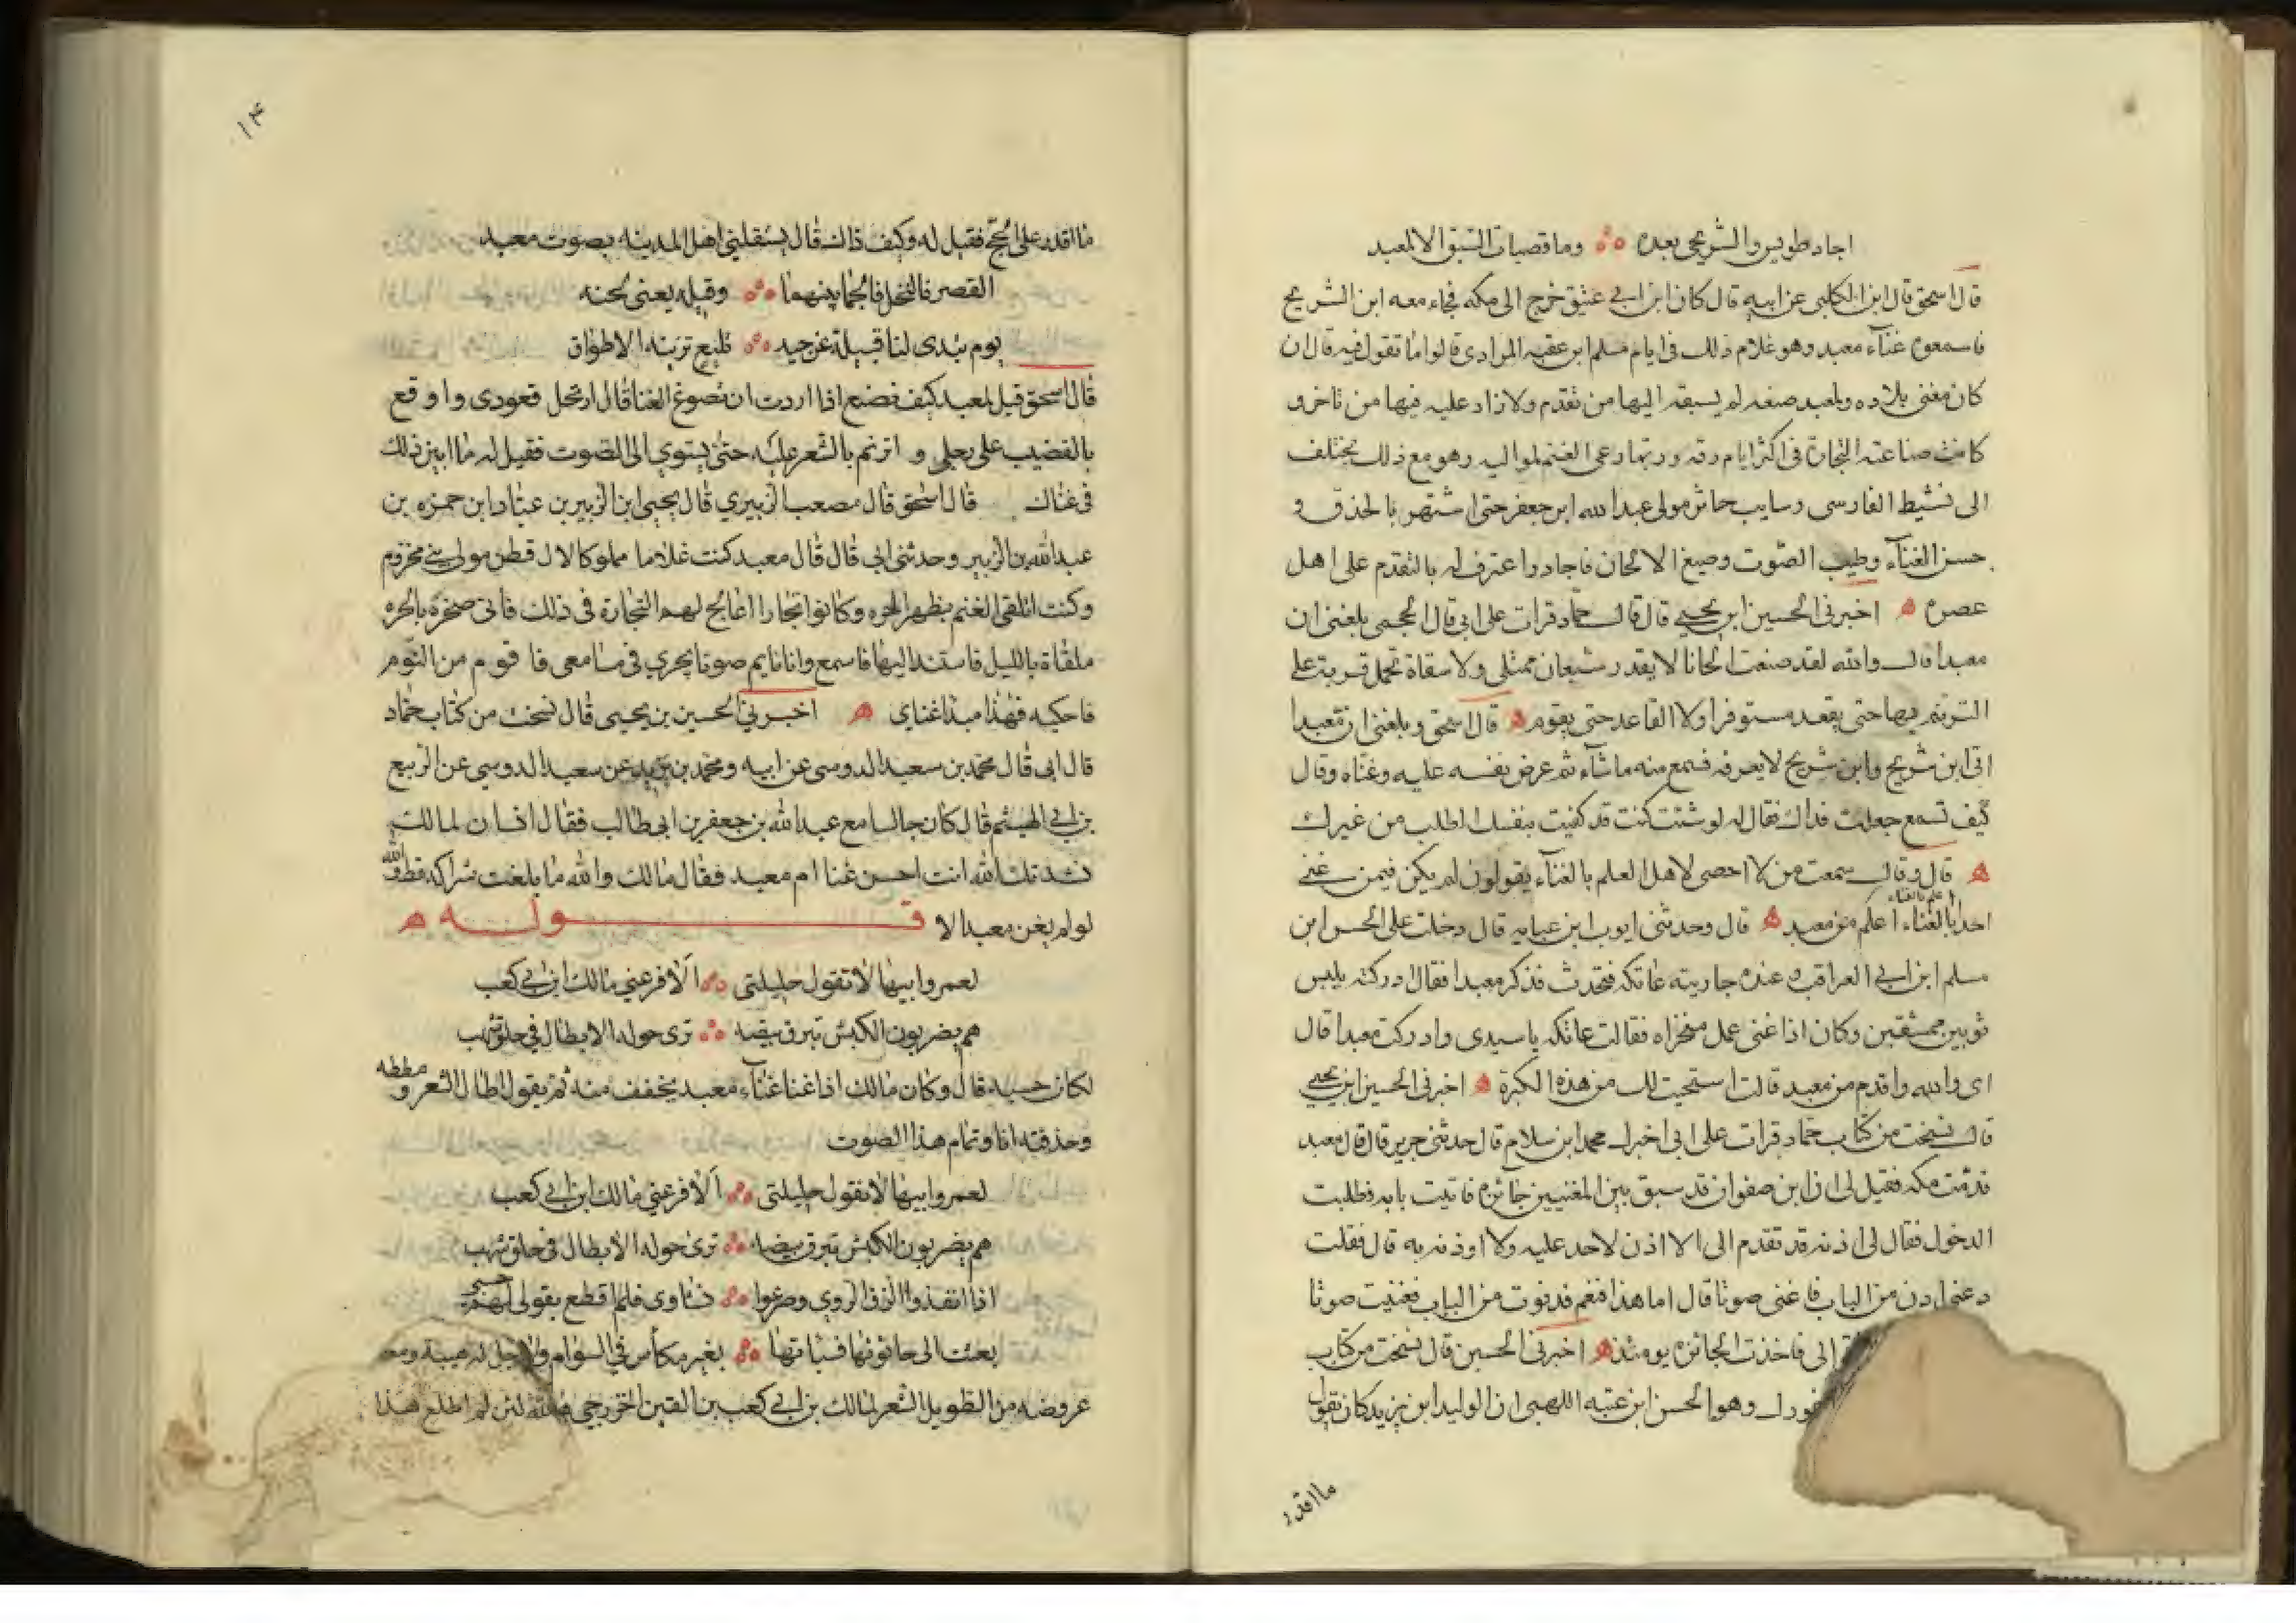 اجاد طويس والشريحى بعده وما قصبات السبق الا لمعبد
قال اسحق قال ابن الكلبى عن ابيه قال كان ابن ابى عتيق خرج الى مكه فجاء معه ابن الشريح
فاسمعوه غناء معبد وهو غلام ذلك فى ايام مسلم ابن عقبه المرادى قالوا ما تقول فيه قال ان
كان مغنى بلاده ولمعبد صنعه لم يسبقه اليها من تقدم ولا زاد عليه فيها من تاخر و
كانت صناعته التجارة فى اكثر ايام رقه وربما رعى الغنم لمواليه وهو مع ذلك يختلف
الى نشيط الفارسى وسايب خاثر مولى عبد الله ابن جعفر حتى اشتهر بالحذق و
حسن الغناء وطيب الصوت وصيغ الالحان فاجاد واعترف له بالتقدم على اهل
عصره اخبرنى الحسين ابن يحيى قال قال حماد قرات على ابى قال الجمحى بلغنى ان
معبدا قال والله لقد صنعت الحانا لا يقدر شبعان ممتلى ولا سقاة تحمل قربة على
الترنم بها حتى يقعد مستوفزا ولا القاعد حتى يقوم قال اسحق وبلغنى ان معبدا
اتى ابن شريح وابن شريح لا يعرفه فسمع منه ما شاء ثم عرض نفسه عليه وغناه وقال
كيف تسمع جعلت فداك فقال له لو شئت كنت قد كفيت بنفسك الطلب من غيرك
قال وقال سمعت من لا احصى لاهل العلم بالغناء يقولون لم يكن فيمن غنى
احد بالغناء اعلم من معبد قال وحدثنى ايوب ابن عبايه قال دخلت على الحسن ابن
مسلم ابن ابى العراقب وعنده جاريته عاتكه فتحدث فذكر معبدا فقال ادركته يلبس
ثوبين ممشقين وكان اذا غنى عمل منخراه فقالت عاتكه يا سيدى وادركت معبدا قال
اى والله واقدم من معبد قالت استحيت لك من هذه الكبرة اخبرنى الحسين ابن يحيى
قال نسخت من كتاب حماد قرات على ابى اخبرك محمد ابن سلام قال حدثنى جرير قال قال معبد
قدمت مكه فقيل لى ان ابن صفوان قد سبق بين المغنيين جائزه فاتيت بابه فطلبت
الدخول فقال لى اذنه قد تقدم الى الا اذن لاحد عليه ولا اوذنه به قال فقلت
دعنى ادن من الباب فاغنى صوتا قال اما هذا فنعم فدنوت من الباب فغنيت صوتا
الى فاخذت الجائزه يومئذ اخبرنى الحسين قال نسخت من كتاب
وهو الحسن ابن عتبه اللهبى ان الوليد ابن يزيد كان يقول
ما اقدر
١٤
ما اقدر على الحج فقيل له وكيف ذاك قال يستقبلنى اهل المدينه بصوت معبد
القصر فالنخل فالجما بينهما وقيله يعنى لحنه
يوم تبدى لنا قبيلة عن جيد تليع تزينه الاطواق
قال اسحق قيل لمعبد كيف تصنع اذا اردت ان تصوغ الغنا قال ارتحل قعودى واوقع
بالقضيب على رحلى و اترنم بالشعر عليه حتى يستوى الى الصوت فقيل له ما ابين ذلك
فى غناك قال اسحق قال مصعب الزبيرى قال يحيى ابن الزبير بن عباد ابن حمزه بن
عبد الله بن الزبير وحدثنى ابى قال قال معبد كنت غلاما مملوكا لال قطن مولى بنى مخزوم
وكنت اتلقى الغنم بظهر الحره وكانوا تجارا اعالج لهم التجارة فى ذلك فاتى صخرة بالحره
ملقاة بالليل فاستند اليها فاسمع وانا نايم صوتا يجرى فى مسامعى فاقوم من النوم
فاحكيه فهذا مبدا غناى اخبرنى الحسين بن يحيى قال نسخت من كتاب حماد
قال ابى قال محمد بن سعيد الدوسى عن ابيه ومحمد بن يزيد عن سعيد الدوسى عن الربيع
بن ابى الهيثم قال كان جالسا مع عبد الله بن جعفر بن ابى طالب فقال انسان لمالك
نشدتك الله انت احسن غنا ام معبد فقال مالك والله ما بلغت شراكه قط والله
لو لم يغن معبد الا قوله
لعمروا بيها لا تقول حليلتى الا فر عنى مالك ابن ابى كعب
هم يضربون الكبش تبرق بيضه ترى حوله الابطال فى حلق شهب
لكان حسبه قال وكان مالك اذا غنا غناء معبد يخفف منه ثم يقول اطال الشعر ومططه
وحذفته انا وتمام هذا الصوت
لعمروا بيها لا تقول حليلتى الا فر عنى مالك ابن ابى كعب
هم يضربون الكبش تبرق بيضه ترى حوله الابطال فى حلق شهب
اذا انفذوا الزق الروى وصرعوا نشاوى فلم اقطع بقولى لهم حسبى
بعثت الى حانوتها فسباتها بغير مكاس فى السوام ولا
عروضه من الطويل الشعر لمالك بن ابى كعب بن القين الخزرجى